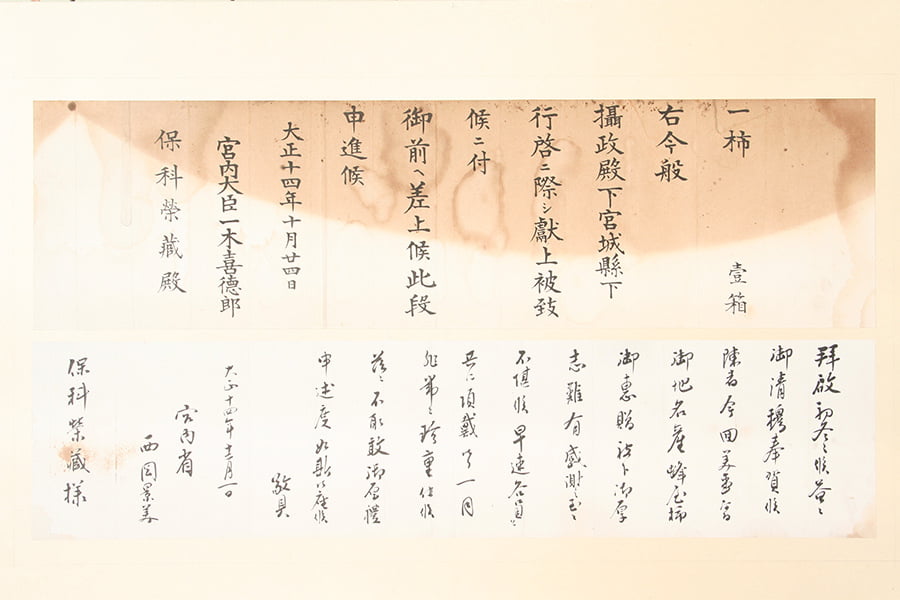 一柿　壹箱
右今般
攝政殿下宮城縣下
行啓ニ際シ獻上被致
候ニ付
御前ヘ差上候此段
申進候
大正十四年十月廿四日
宮内大臣一木喜德郎
保科榮藏殿
拝啓初冬之候益々
御清穆奉賀候
陳者今回
御地名産蜂屋柿
御恵贈被下御厚
志難有感謝之至ニ
不堪候早速各員ニ
共ニ頂戴
非常ニ珍重仕候
茲ニ不取敢御厚禮
申述度如斯ニ座候
敬具
大正十四年十一月一日
宮内省
西岡
保科榮藏様